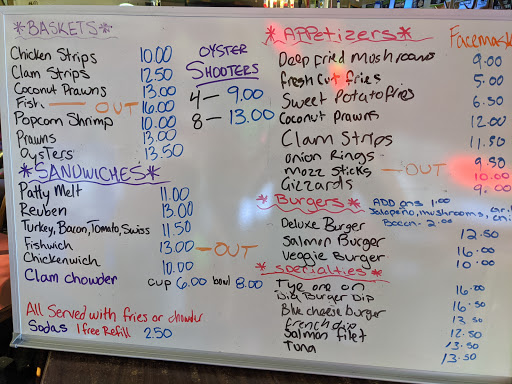 *BASKETS*
Chicken Strips 10.00
Clam Strips 12.50
Coconut Prawns 13.00
Fish — OUT 16.00
Popcorn Shrimp 10.00
Prawns 13.00
Oysters 13.50
OYSTER
SHOOTERS
4 — 9.00
8 — 13.00
*SANDWICHES*
Patty Melt 11.00
Reuben 13.00
Turkey, Bacon, Tomato, Swiss 11.50
Fishwich 13.00 — OUT
Chickenwich 10.00
Clam chowder cup 6.00 bowl 8.00
All Served with fries or chowder
Sodas 1 free Refill 2.50
*APPetizers*
Facemask
Deep fried mushrooms 9.00
fresh cut fries 5.00
Sweet Potato fries 6.50
Coconut Prawns 12.00
Clam Strips 11.50
onion Rings 9.50
mozz Sticks — OUT 10.00
Gizzards 9.00
*Burgers*
ADD ons 1.00
Jalapeño, mushrooms,
Bacon 2.00
Deluxe Burger 12.50
Salmon Burger 16.00
Veggie Burger 10.00
*Specialties*
Tye one on 16.00
Big Burger Dip 16.50
Blue cheese burger 13.50
french dip 12.50
Salmon filet 13.50
Tuna 13.50